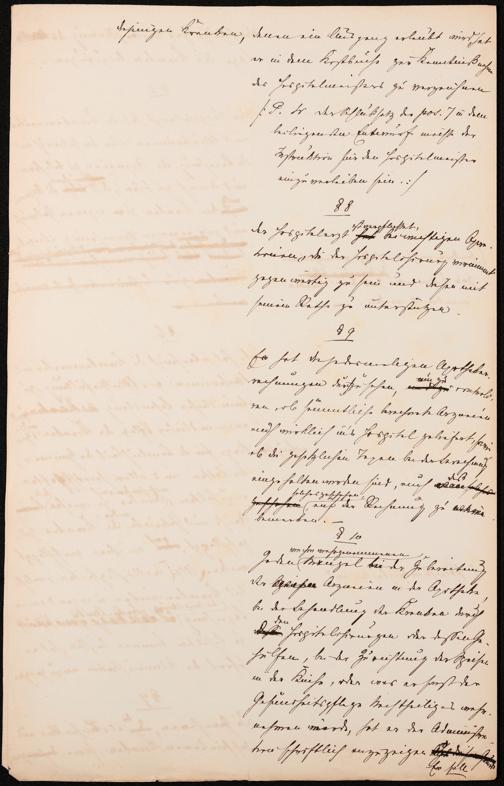 desjenigen Kranken, denen ein Ausgang erlaubt wird, hat
er in dem Kostbuche zur Kenntnißnahme
des Hospitalmeisters zu verzeichnen
der Schlußsatz der pos. 7 in dem
Entwurf
Instruktion für den Hospitalmeister
einzuverleiben sein.
§ 8
Der Hospitalarzt ist verpflichtet, bei wichtigen Ope-
rationen, die der Hospitalchirurg vornimmt
gegenwärtig zu sein und diesen mit
seinem Rathe zu unterstützen.
§ 9
Er hat die jedesmaligen Apotheker-
rechnungen durchzusehen, und zu controli-
ren, ob sämmtliche berechnete Arzneien
auch wirklich ins Hospital geliefert, sowie
ob die gesetzlichen Taxen bei der Berechnung
eingehalten worden sind, auch
auf der Rechnung zu
bemerken.
§ 10
Jeden wahrgenommenen Mangel bei der Zubereitung
der Arzneien in der Apotheke,
bei der Behandlung der Kranken durch
den Hospitalchirurgen oder dessen Ge-
hülfen, bei der Zurichtung der Speisen
in der Küche, oder was er sonst der
Gesundheitspflege Nachtheiliges wahr-
nehmen würde, hat er der Administra-
tion schriftlich anzuzeigen
Er soll